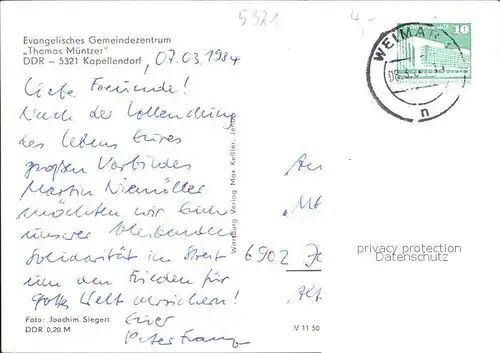 5321
4,-
Evangelisches Gemeindezentrum
„Thomas Müntzer"
DDR – 5321 Kapellendorf, 07.03.1984
Liebe Freunde!
Nach der Vollendung
des Lebens Eures
großen Vorbildes
Martin Niemöller
möchten wir Euch
unserer bleibenden
Solidarität im Streit
um den Frieden für
Gottes Welt versichern!
Euer
Peter Franz
Foto: Joachim Siegert
DDR 0,20 M
Wartburg Verlag Max Keßler, Jena
V 11 50
An
„M
6902 Je
Alt
WEIMAR 1
n
10
privacy protection
Datenschutz